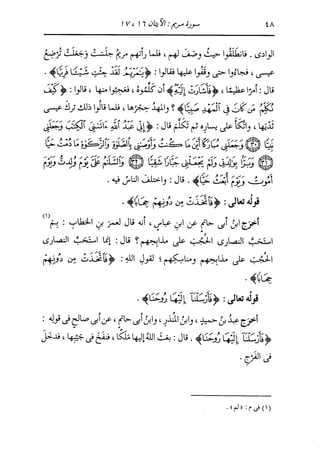 ٤٨ سورة مريم : الآيتان ١٦ ، ١٧
الوادى . فانطلقوا حيث وصف لهم ، فلما رأتهم مريم جلست وجعلت ترضع
عيسى ، فجاءوا حتى وقفوا عليها فقالوا : ﴿ يَمَرْيَمُ لَقَدْ جِئْتِ شَيْئًا فَرِيًّا ﴾ .
قال : أمرًا عظيمًا ، ﴿ فَأَشَارَتْ إِلَيْهِ ﴾ أن كلموه ، فعجبوا منها ، قالوا : ﴿ كَيْفَ
نُكَلِّمُ مَن كَانَ فِي ٱلْمَهْدِ صَبِيًّا ﴾ ؟ والمهد حجرها ، فلما قالوا ذلك ترك عيسى
ثديها ، واتكأ على يساره ثم تكلم قال : ﴿ إِنِّي عَبْدُ ٱللَّهِ ءَاتَىٰنِيَ ٱلْكِتَٰبَ وَجَعَلَنِي
نَبِيًّا وَجَعَلَنِي مُبَارَكًا أَيْنَ مَا كُنتُ وَأَوْصَٰنِي بِٱلصَّلَوٰةِ وَٱلزَّكَوٰةِ مَا دُمْتُ حَيًّا
وَبَرًّۢا بِوَٰلِدَتِي وَلَمْ يَجْعَلْنِي جَبَّارًا شَقِيًّا وَٱلسَّلَٰمُ عَلَيَّ يَوْمَ وُلِدتُّ وَيَوْمَ
أَمُوتُ وَيَوْمَ أُبْعَثُ حَيًّا ﴾ . قال : واختلف الناس فيه .
قوله تعالى : ﴿ فَٱتَّخَذَتْ مِن دُونِهِمْ حِجَابًا ﴾ .
أخرج ابن أبى حاتم عن ابن عباس ، أنه قال لعمر بن الخطاب : بم (١)
استحب النصارى الحجب على مذابحهم ؟ قال : إنما استحب النصارى
الحجب على مذابحهم ومناسكهم ؛ لقول الله : ﴿ فَٱتَّخَذَتْ مِن دُونِهِمْ
حِجَابًا ﴾ .
قوله تعالى : ﴿ فَأَرْسَلْنَآ إِلَيْهَا رُوحَنَا ﴾ .
أخرج عبد بن حميد ، وابن المنذر ، وابن أبى حاتم ، عن أبى صالح فى قوله :
﴿ فَأَرْسَلْنَآ إِلَيْهَا رُوحَنَا ﴾ . قال : بعث الله إليها ملكًا ، فنفخ فى جيبها ، فدخل
فى الفرج .
(١) فى م : « لم » .